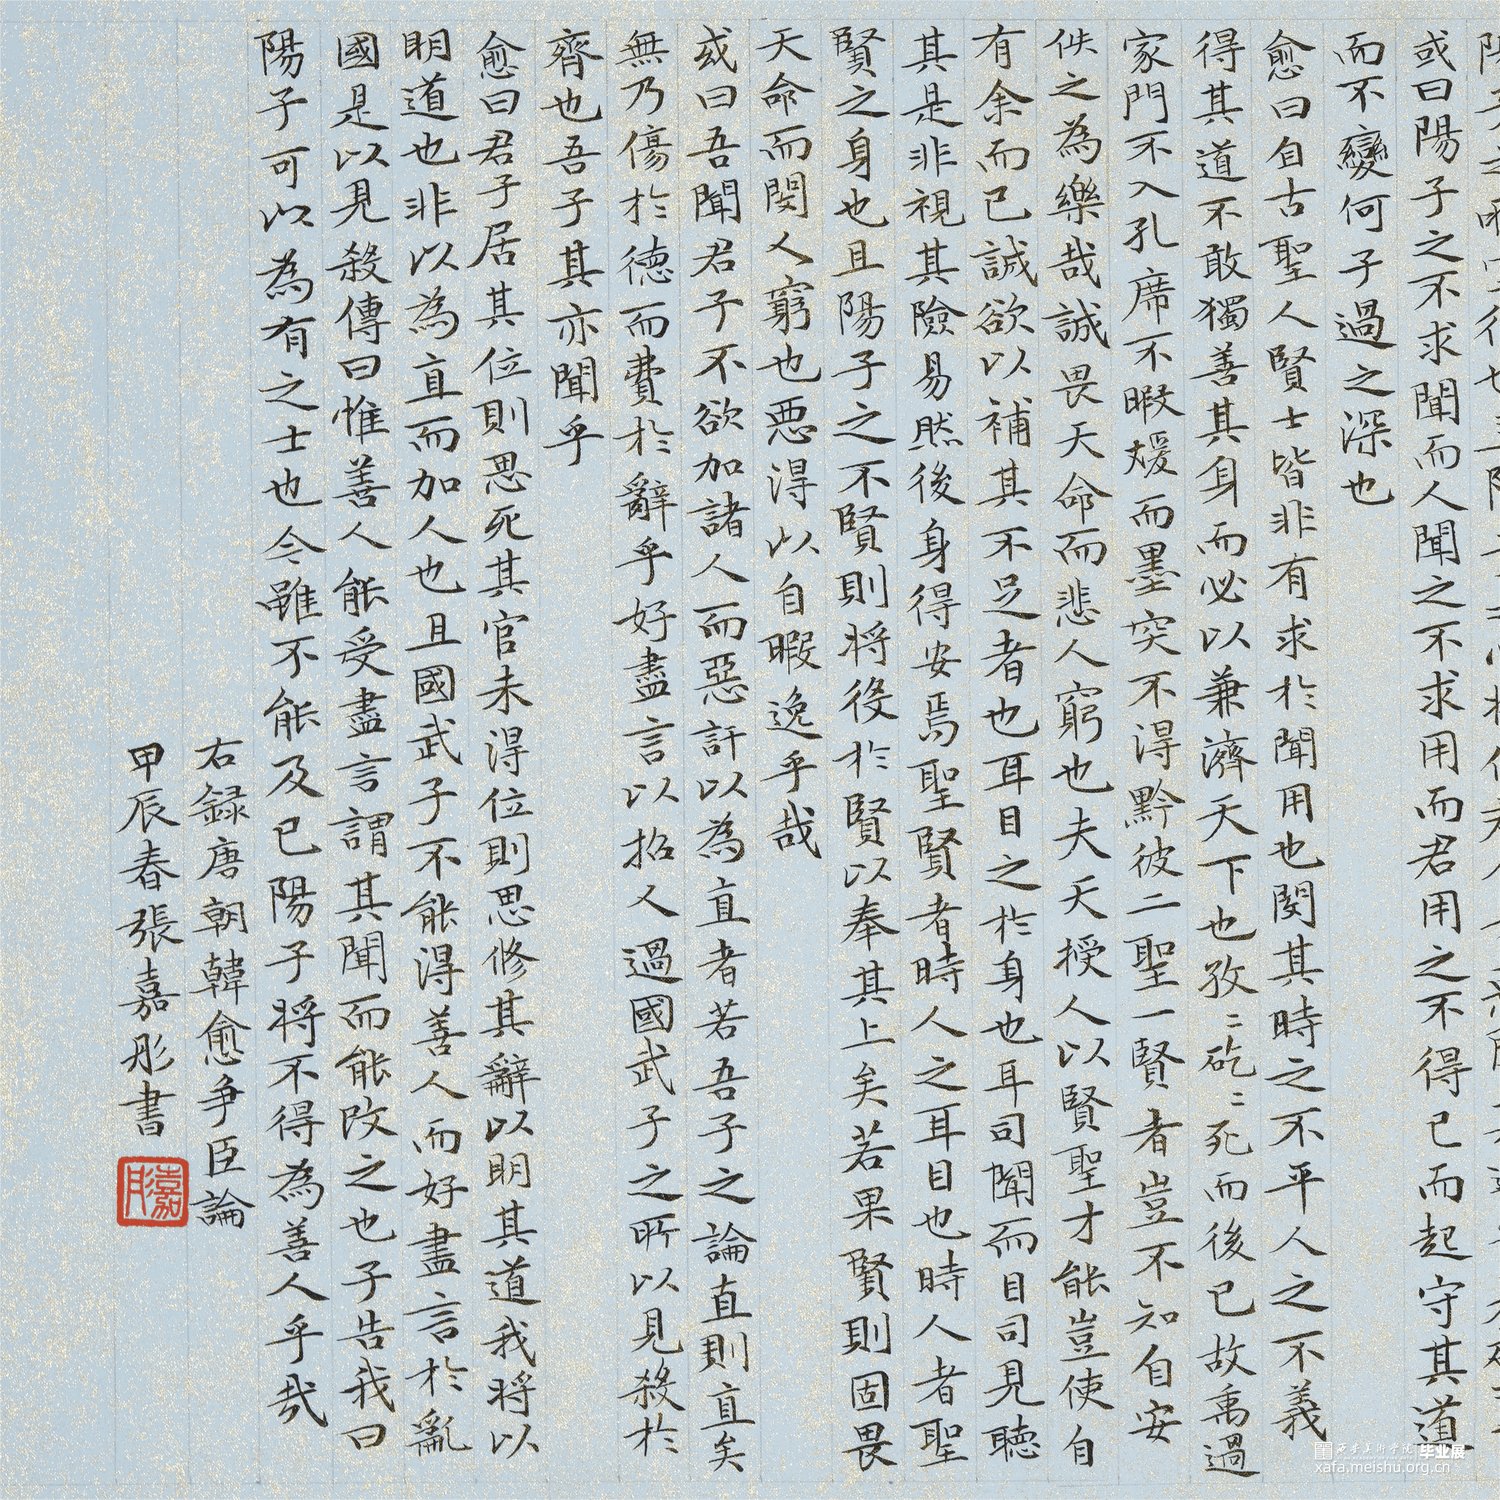 或曰陽子之不求聞而人聞之不求用而君用之不得已而起守其道
而不變何子過之深也
愈曰自古聖人賢士皆非有求於聞用也閔其時之不平人之不義
得其道不敢獨善其身而必以兼濟天下也孜〻矻〻死而後已故禹過
家門不入孔席不暇煖而墨突不得黔彼二聖一賢者豈不知自安
佚之為樂哉誠畏天命而悲人窮也夫天授人以賢聖才能豈使自
有余而已誠欲以補其不足者也耳目之於身也耳司聞而目司見聽
其是非視其險易然後身得安焉聖賢者時人之耳目也時人者聖
賢之身也且陽子之不賢則將役於賢以奉其上矣若果賢則固畏
天命而閔人窮也惡得以自暇逸乎哉
或曰吾聞君子不欲加諸人而惡訐以為直者若吾子之論直則直矣
無乃傷於德而費於辭乎好盡言以招人過國武子之所以見殺於
齊也吾子其亦聞乎
愈曰君子居其位則思死其官未得位則思修其辭以明其道我將以
明道也非以為直而加人也且國武子不能得善人而好盡言於亂
國是以見殺傳曰惟善人能受盡言謂其聞而能改之也子告我曰
陽子可以為有之士也今雖不能及已陽子將不得為善人乎哉
右録唐朝韓愈爭臣論
甲辰春張嘉彤書
嘉彤
西安美術學院 毕业展
xafa.meishu.org.cn